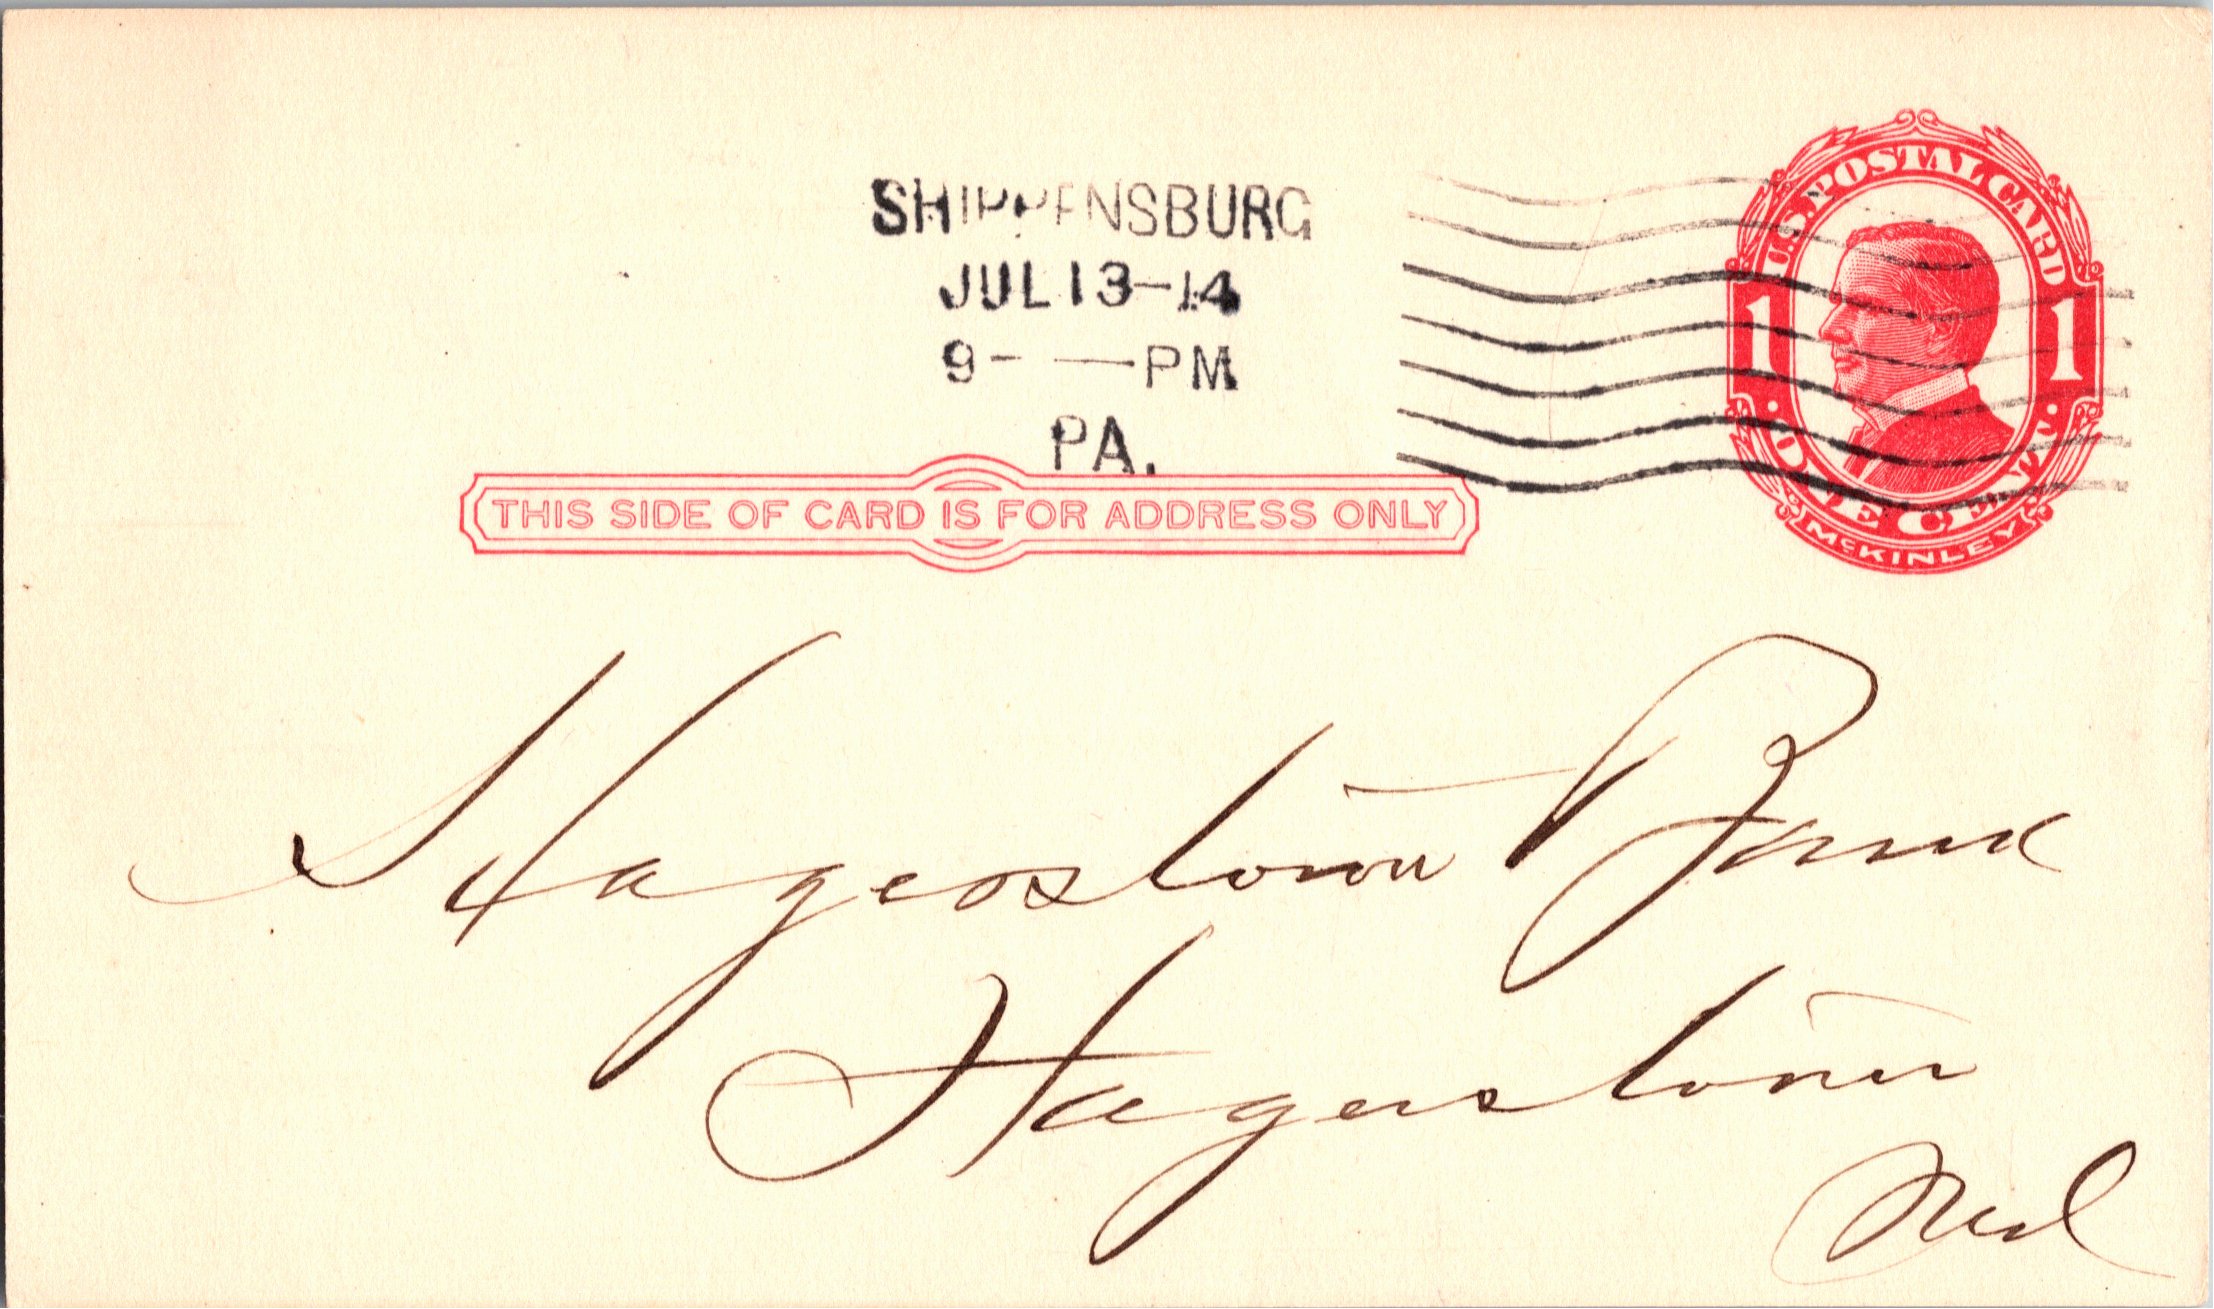 SHIPPENSBURG
JUL 13-14
9- —PM
PA.
U.S. POSTAL CARD
1 1
·ONE CENT·
McKINLEY
THIS SIDE OF CARD IS FOR ADDRESS ONLY
Hagerstown Bank
Hagerstown
Md